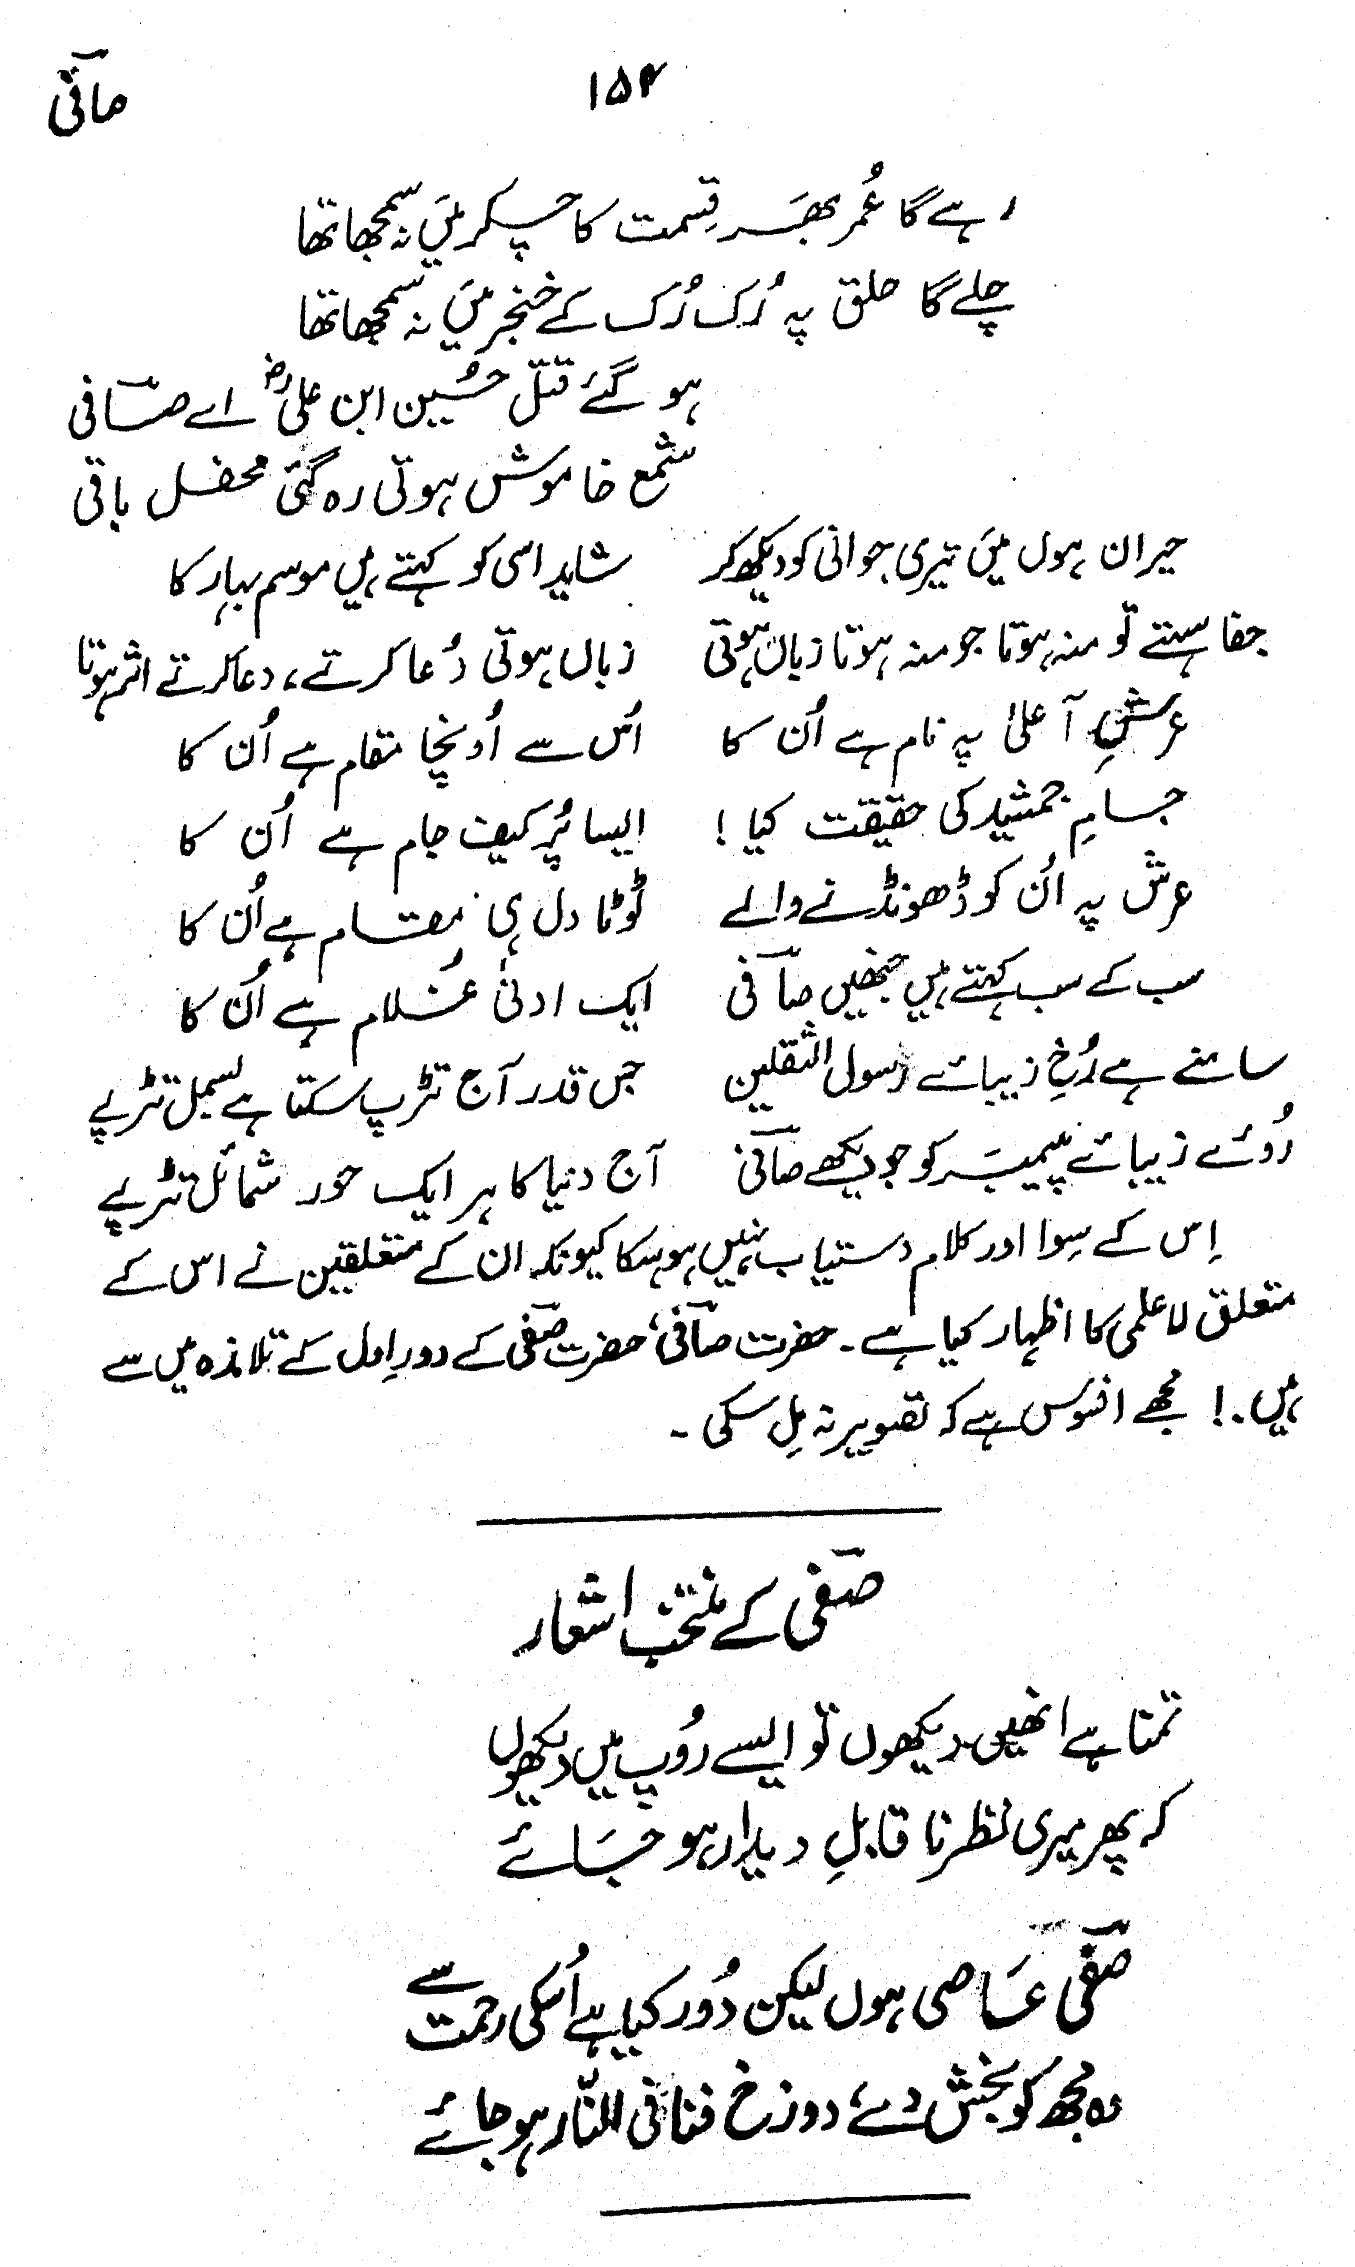 ۱۵۴
صافی
رہے گا عُمر بھَر قِسمت کا چکر میَں نہ سمجھا تھا
چلے گا حلق پہ رُک رُک کے خنجر میَں نہ سمجھا تھا
ہو گئے قتل حُسین ابن علیؓ اے صافی
شمع خاموش ہوئی رہ گئی محفل باقی
حیران ہوں میَں تیری جوانی کو دیکھ کر شاید اسی کو کہتے ہیں موسم بہار کا
جفا سہتے تو منہ ہوتا جو منہ ہوتا زبان ہوتی زباں ہوتی دُعا کرتے، دعا کرتے اثر ہوتا
عرشِ آعلیٰ پہ نام ہے اُن کا اُس سے اُونچا مقام ہے اُن کا
جامِ جمشید کی حقیقت کیا ! ایسا پُر کیف جام ہے اُن کا
عرش پہ اُن کو ڈھونڈنے والے ٹُوٹا دل ہی مقام ہے اُن کا
سب کے سب کہتے ہیں جنھیں صافی ایک ادنیٰ غُلام ہے اُن کا
سامنے ہے رُخِ زیبائے رسول الثقلین جس قدر آج تڑپ سکتا ہے بسمل تڑپے
رُوئے زیبائے پیمبَر کو جو دیکھے صافی آج دنیا کا ہر ایک حور شمائل تڑپے
اِس کے سِوا اور کلام دستیاب نہیں ہو سکا کیونکہ ان کے متعلقین نے اس کے
متعلق لاعلمی کا اظہار کیا ہے۔ حضرت صافی، حضرت صفی کے دورِ اول کے تلامذہ میں سے
ہیں۔! مجھے افسوس ہے کہ تصویر نہ مِل سکی۔
صفی کے منتخب اشعار
تمنا ہے انھیں دیکھوں تو ایسے رُوپ میں دیکھوں
کہ پھر میری نظر نا قابلِ دیدار ہو جَائے
صفی عَاصی ہوں لیکن دُور کیا ہے اُسکی رحمت سے
وہ مجھ کو بخش دے، دوزخ فنا فی النّار ہو جائے